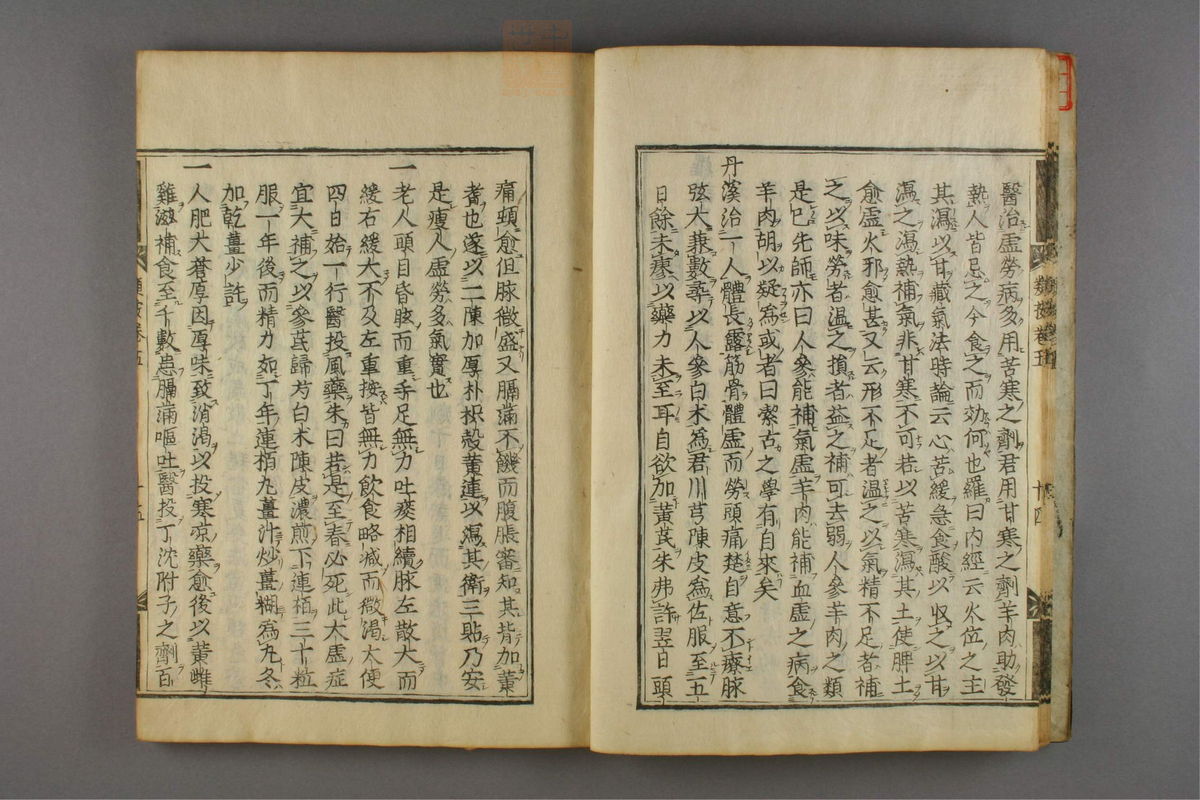 醫治虛勞病多用苦寒之劑君用甘寒之劑羊肉助發
熱人皆忌之今食之而効何也羅曰內經云火位之主
其瀉以甘藏氣法時論云心苦緩急食酸以収之以甘
瀉之瀉熱補氣非甘寒不可若以苦寒瀉其土使脾土
愈虛火邪愈甚又云形不足者温之以氣精不足者補
之以味勞者温之損者益之補可去弱人參羊肉之類
是已先師亦曰人參能補氣虛羊肉能補血虛之病食
羊肉胡以疑為或者曰潔古之學有自來矣
丹溪治一人體長露筋骨體虛而勞頭痛楚自意不療脉
弦大兼數葬以人參白朮為君川芎陳皮為佐服至五
日餘未瘳以藥力未至耳自欲加黃茋朱弗許翌日頭
類按卷五
十四
痛頓愈但脉微盛又膈滿不饑而腹脹審知其背加黃
耆也遂以二陳加厚朴枳殻黄連以瀉其衛三貼乃安
是瘦人虛勞多氣實也
一老人頭目昏眩而重手足無力吐痰相續脉左散大而
緩右緩大不及左重按皆無力飲食略减而微渴大便
四日始一行醫投風藥朱曰若是至春必死此大虛症
宜大補之以參茋歸芍白朮陳皮濃煎下連栢三十粒
服一年後而精力如丁年連栢丸薑汁炒薑糊為丸冬
加乾薑少許
一人肥大蒼厚因厚味致消渴以投寒凉藥愈後以黃雌
雞滋補食至千數患膈滿嘔吐醫投丁沈附子之劑百